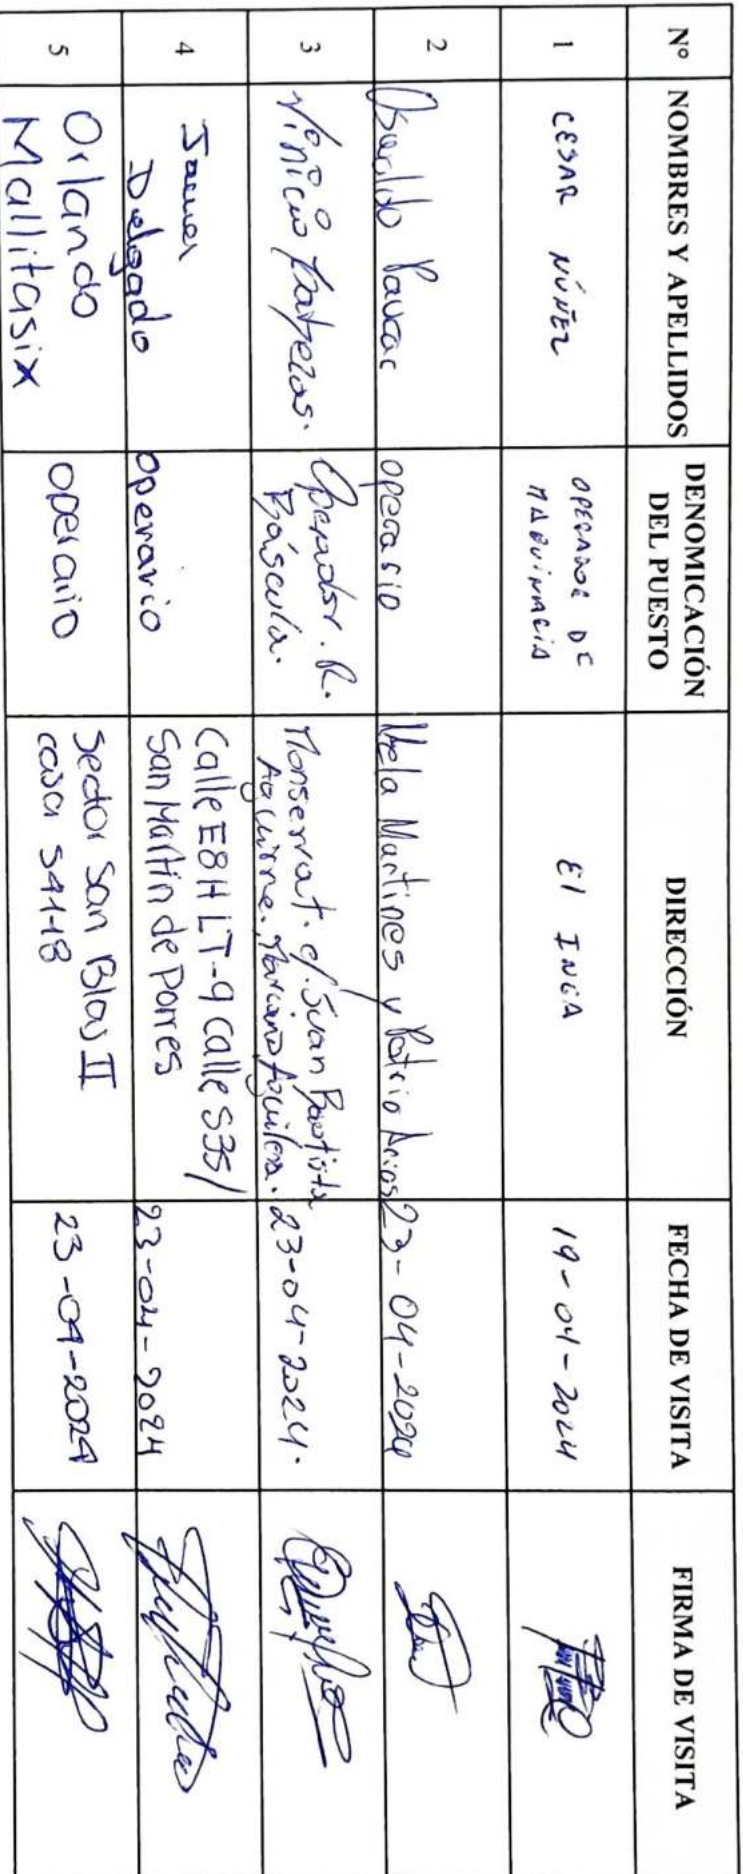 N° NOMBRES Y APELLIDOS DENOMICACIÓN DEL PUESTO DIRECCIÓN FECHA DE VISITA FIRMA DE VISITA
1 CESAR NÚÑEZ OPERADOR DE MAQUINARIA El INGA 19-04-2024
2 Oswaldo Paucar operario Mela Martines y Patricio Arias 23-04-2024
3 Vinicio Operador. R. Báscula. Monserrat. c/. Juan Bautista Aguirre. Marciano Aguilera. 23-04-2024.
4 Delgado Operario Calle E8H LT-9 calle S35/ San Martín de Porres 23-04-2024
5 Orlando Mallitasix operario Sector San Blas II casa S4118 23-04-2024